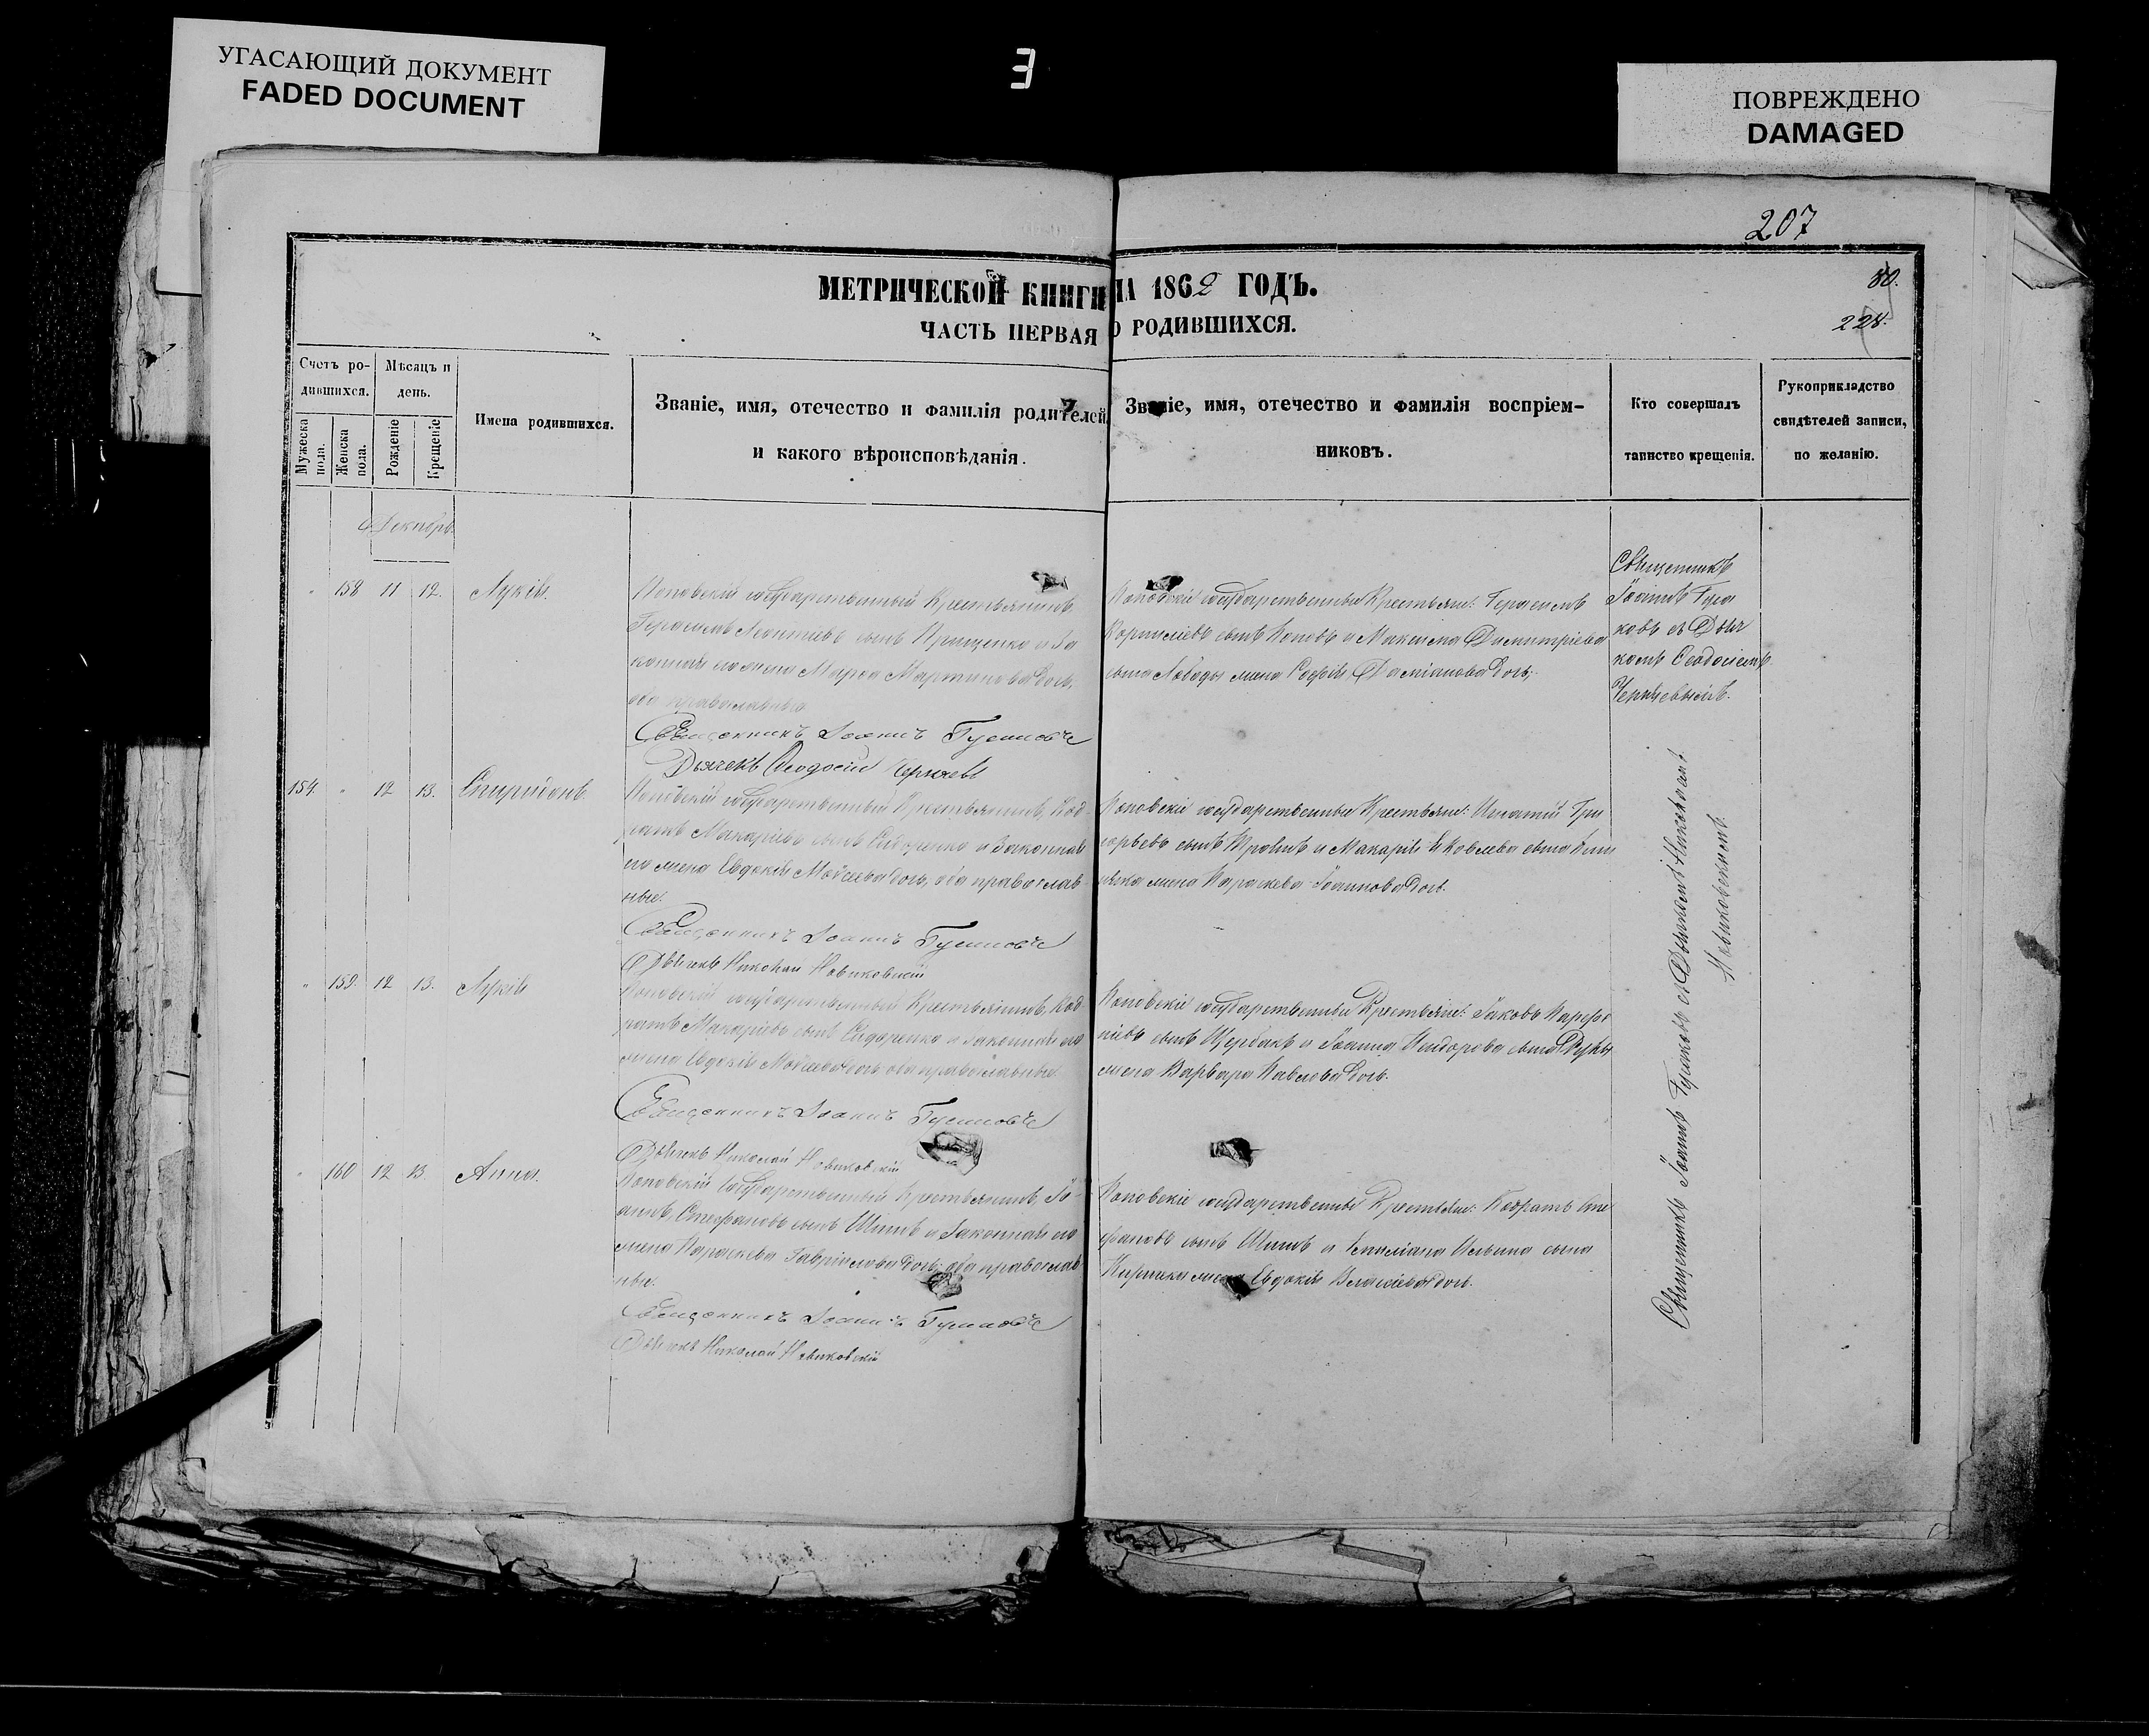 УГАСАЮЩИЙ ДОКУМЕНТ
FADED DOCUMENT
3
ПОВРЕЖДЕНО
DAMAGED
207
80.
228.
МЕТРИЧЕСКОЙ КНИГИ НА 1862 ГОДЪ.
ЧАСТЬ ПЕРВАЯ О РОДИВШИХСЯ.
Счетъ ро-
дившихся.
Мужеска
пола.
Женска
пола.
Мѣсяцъ и
день.
Рожденіе
Крещеніе
Имена родившихся.
Званіе, имя, отечество и фамилія родителей
и какого вѣроисповѣданія.
Званіе, имя, отечество и фамилія воспріем-
никовъ.
Кто совершалъ
таинство крещенія.
Рукоприкладство
свидѣтелей записи,
по желанію.
Декабрь
158 11 12. Лукія.
Поповскій государственный Крестьянинъ
Герасимъ Леонтіевъ сынъ Грищенко и За
конная его жена Марѳа Мартинова дочь,
оба православные
Священникъ Іоаннъ
Дьячекъ Ѳеодосій Черняевъ
Поповскіе государственные Крестьяне: Герасимъ
Корниліевъ сынъ Поповъ и Максима Димитріева
сына Лободы жена Софія Даміанова дочь.
Священникъ
Іоаннъ Гуса
ковъ съ Дьяч
комъ Ѳеодосіемъ
Черняевымъ.
154. 12 13. Спиридонъ.
Поповскій государственный Крестьянинъ, Код
ратъ Макаріевъ сынъ Сидоренко и Законная
его жена Евдокія Моисеева дочь, оба православ
ные.
Священникъ Іоаннъ
Дьячекъ Николай Новиковскій
Поповскіе государственные Крестьяне: Игнатій Гри
горьевъ сынъ и Макарія Яковлева сына
жена Параскева Іоаннова дочь.
159. 12 13. Лукія
Поповскій государственный Крестьянинъ, Код
ратъ Макаріевъ сынъ Сидоренко и Законная его
жена Евдокія Моисеева дочь, оба православные.
Священникъ Іоаннъ
Дьячекъ Николай Новиковскій
Поповскіе государственные Крестьяне: Іаковъ Парфе
ніевъ сынъ Щербакъ и Іоанна сына
жена Варвара Павлова дочь.
160 12 13. Анна.
Поповскій государственный Крестьянинъ, Іо
аннъ, Стефановъ сынъ Шишъ и Законная его
жена Параскева Гавріилова дочь, оба православ
ные.
Священникъ Іоаннъ
Дьячекъ Николай Новиковскій
Поповскіе государственные Крестьяне: Кодратъ Сте
фановъ сынъ Шишъ и Емиліана Ильина сына
жена Евдокія Власіева дочь.
Священникъ Іоаннъ Гусаковъ съ Дьячкомъ Николаемъ
Новиковскимъ.